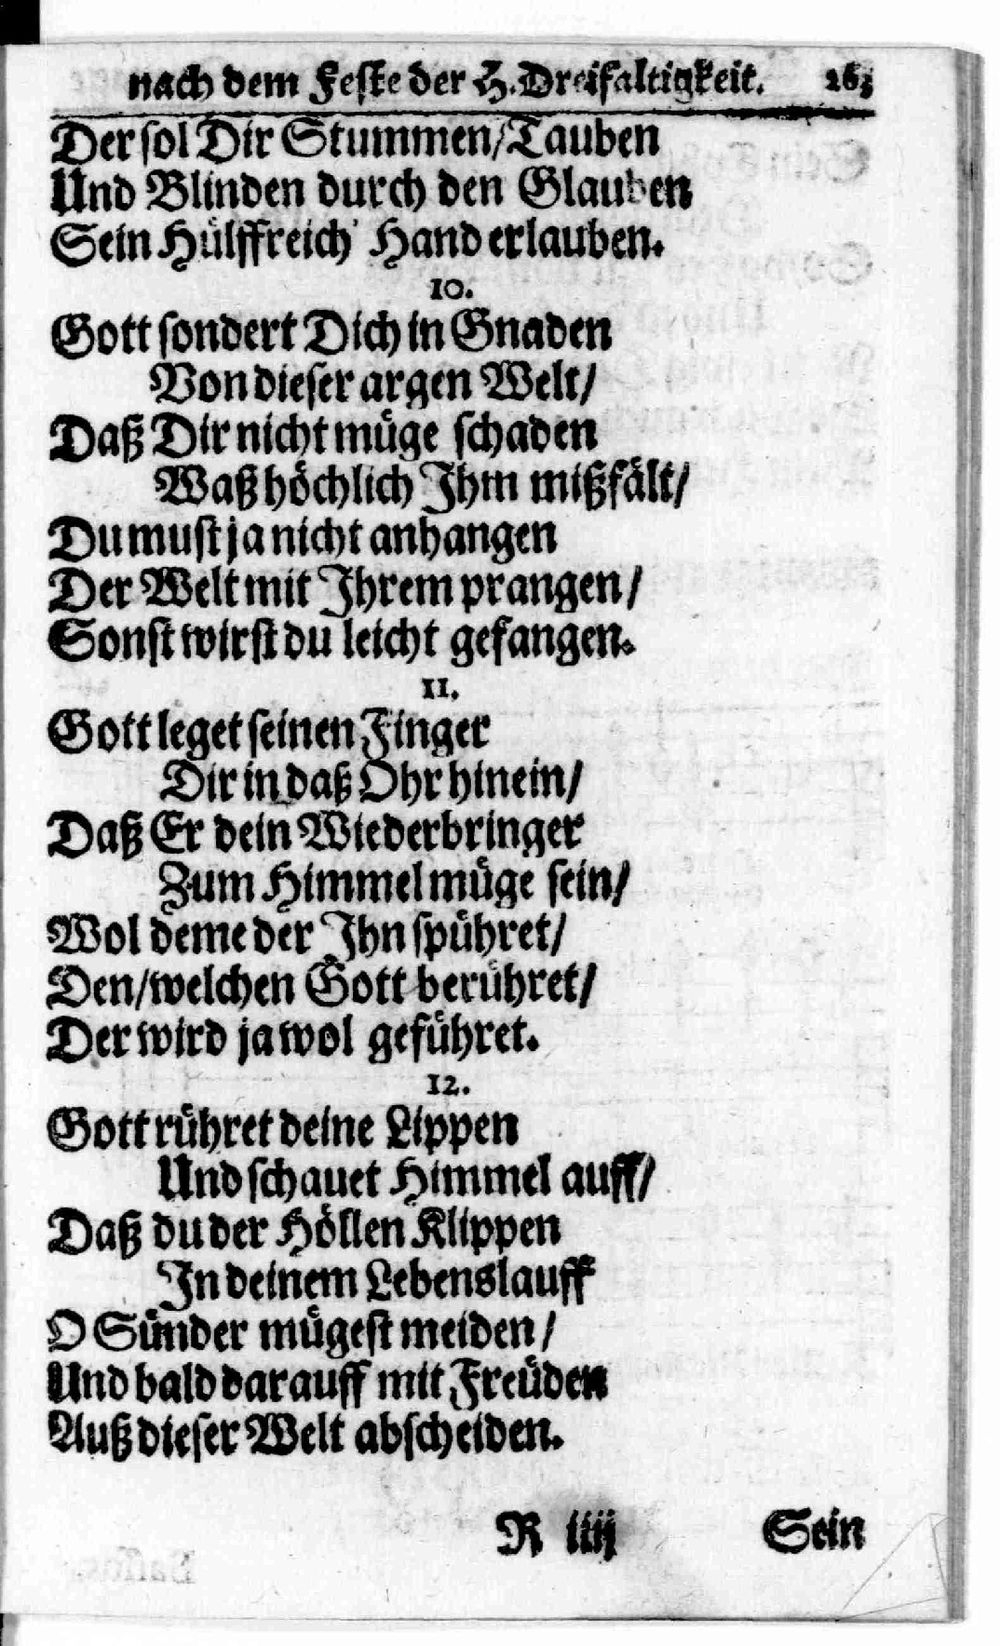 nach dem Feste der H. Dreifaltigkeit. 263
Der sol Dir Stummen/Tauben
Und Blinden durch den Glauben
Sein Hülffreich' Hand erlauben.
10.
Gott sondert Dich in Gnaden
Von dieser argen Welt/
Daß Dir nicht müge schaden
Waß höchlich Ihm mißfält/
Du must ja nicht anhangen
Der Welt mit Ihrem prangen/
Sonst wirst du leicht gefangen.
11.
Gott leget seinen Finger
Dir in daß Ohr hinein/
Daß Er dein Wiederbringer
Zum Himmel müge sein/
Wol deme der Ihn spühret/
Den/welchen Gott berühret/
Der wird ja wol geführet.
12.
Gott rühret deine Lippen
Und schauet Himmel auff/
Daß du der Höllen Klippen
In deinem Lebenslauff
O Sünder mügest meiden/
Und bald darauff mit Freüden
Auß dieser Welt abscheiden.
R iiij Sein